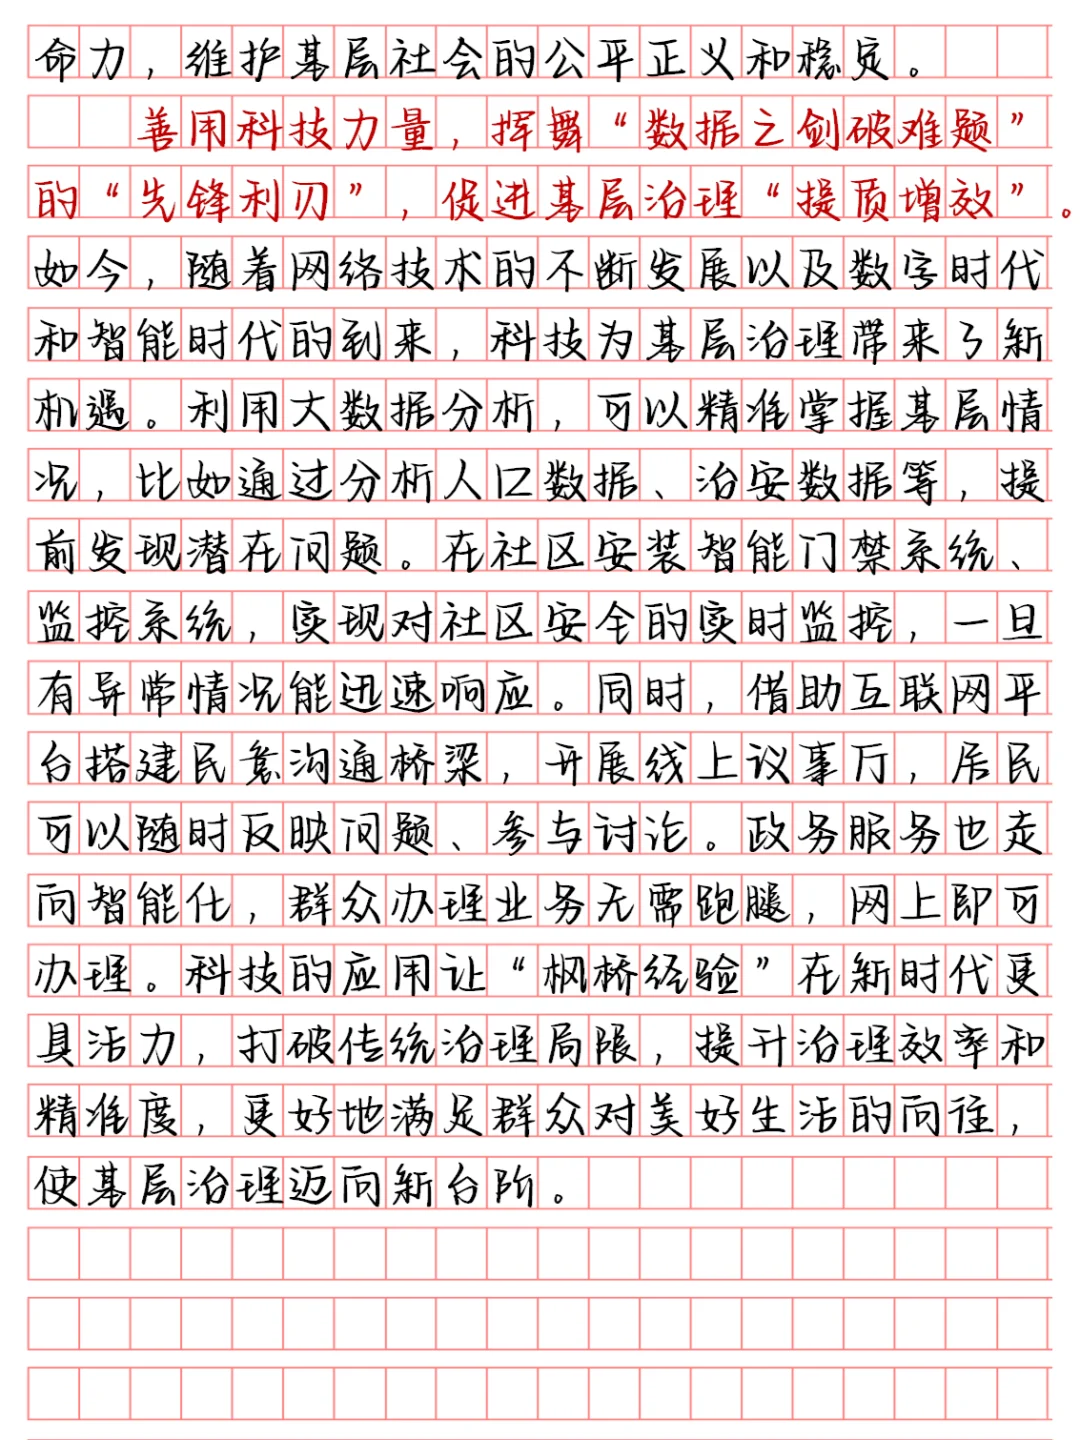 命力，维护基层社会的公平正义和稳定。
善用科技力量，挥舞“数据之剑破难题”
的“先锋利刃”，促进基层治理“提质增效”。
如今，随着网络技术的不断发展以及数字时代
和智能时代的到来，科技为基层治理带来了新
机遇。利用大数据分析，可以精准掌握基层情
况，比如通过分析人口数据、治安数据等，提
前发现潜在问题。在社区安装智能门禁系统、
监控系统，实现对社区安全的实时监控，一旦
有异常情况能迅速响应。同时，借助互联网平
台搭建民意沟通桥梁，开展线上议事厅，居民
可以随时反映问题、参与讨论。政务服务也走
向智能化，群众办理业务无需跑腿，网上即可
办理。科技的应用让“枫桥经验”在新时代更
具活力，打破传统治理局限，提升治理效率和
精准度，更好地满足群众对美好生活的向往，
使基层治理迈向新台阶。